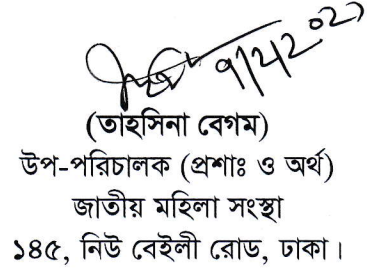 (তাহসিনা বেগম)
উপ-পরিচালক (প্রশাঃ ও অর্থ)
জাতীয় মহিলা সংস্থা
১৪৫, নিউ বেইলী রোড, ঢাকা।